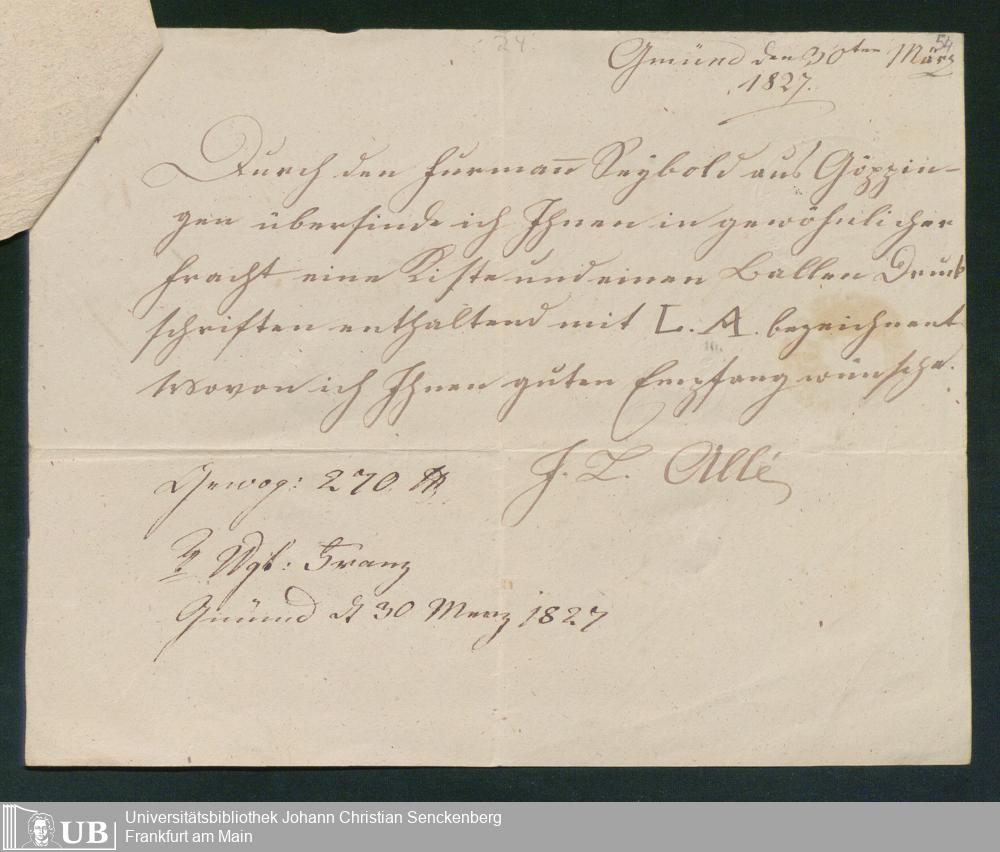 24.
54
Gmünd den 30ten März
1827.
Durch den Furmañ Seybold aus Göppin-
gen übersinde ich Ihnen in gewöhnlicher
Fracht eine Kiste und einen Ballen Druck
schriften enthaltend mit L. A. bezeichnent
Wovon ich Ihnen guten Empfang wünsche.
J. L. Allé
Gewog: 270 ℔
Wgl: Franz
Gmünd d 30 Merz 1827
UB
Universitätsbibliothek Johann Christian Senckenberg
Frankfurt am Main